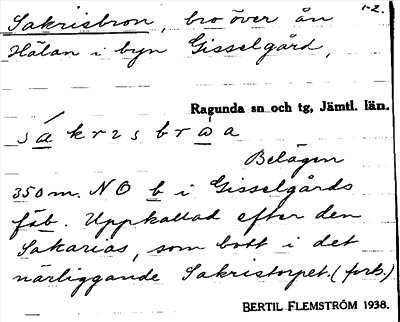 1-2.
Sakrisbron, bro över ån
Hälan i byn Gisselgård,
Ragunda sn och tg, Jämtl. län.
Belägen
350 m. NO b i Gisselgårds
fäb. Uppkallad efter den
Sakarias, som bott i det
närliggande Sakristorpet. (förb.)
BERTIL FLEMSTRÖM 1938.